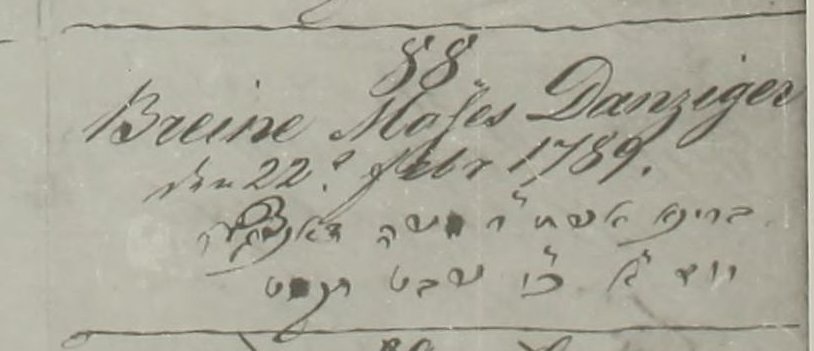 88.
Breine Moſes Danziger
den 22.t Febr 1789.
ברינא אשת ר" משה דאנציגר
יום א" כ"ו שבט תקמט